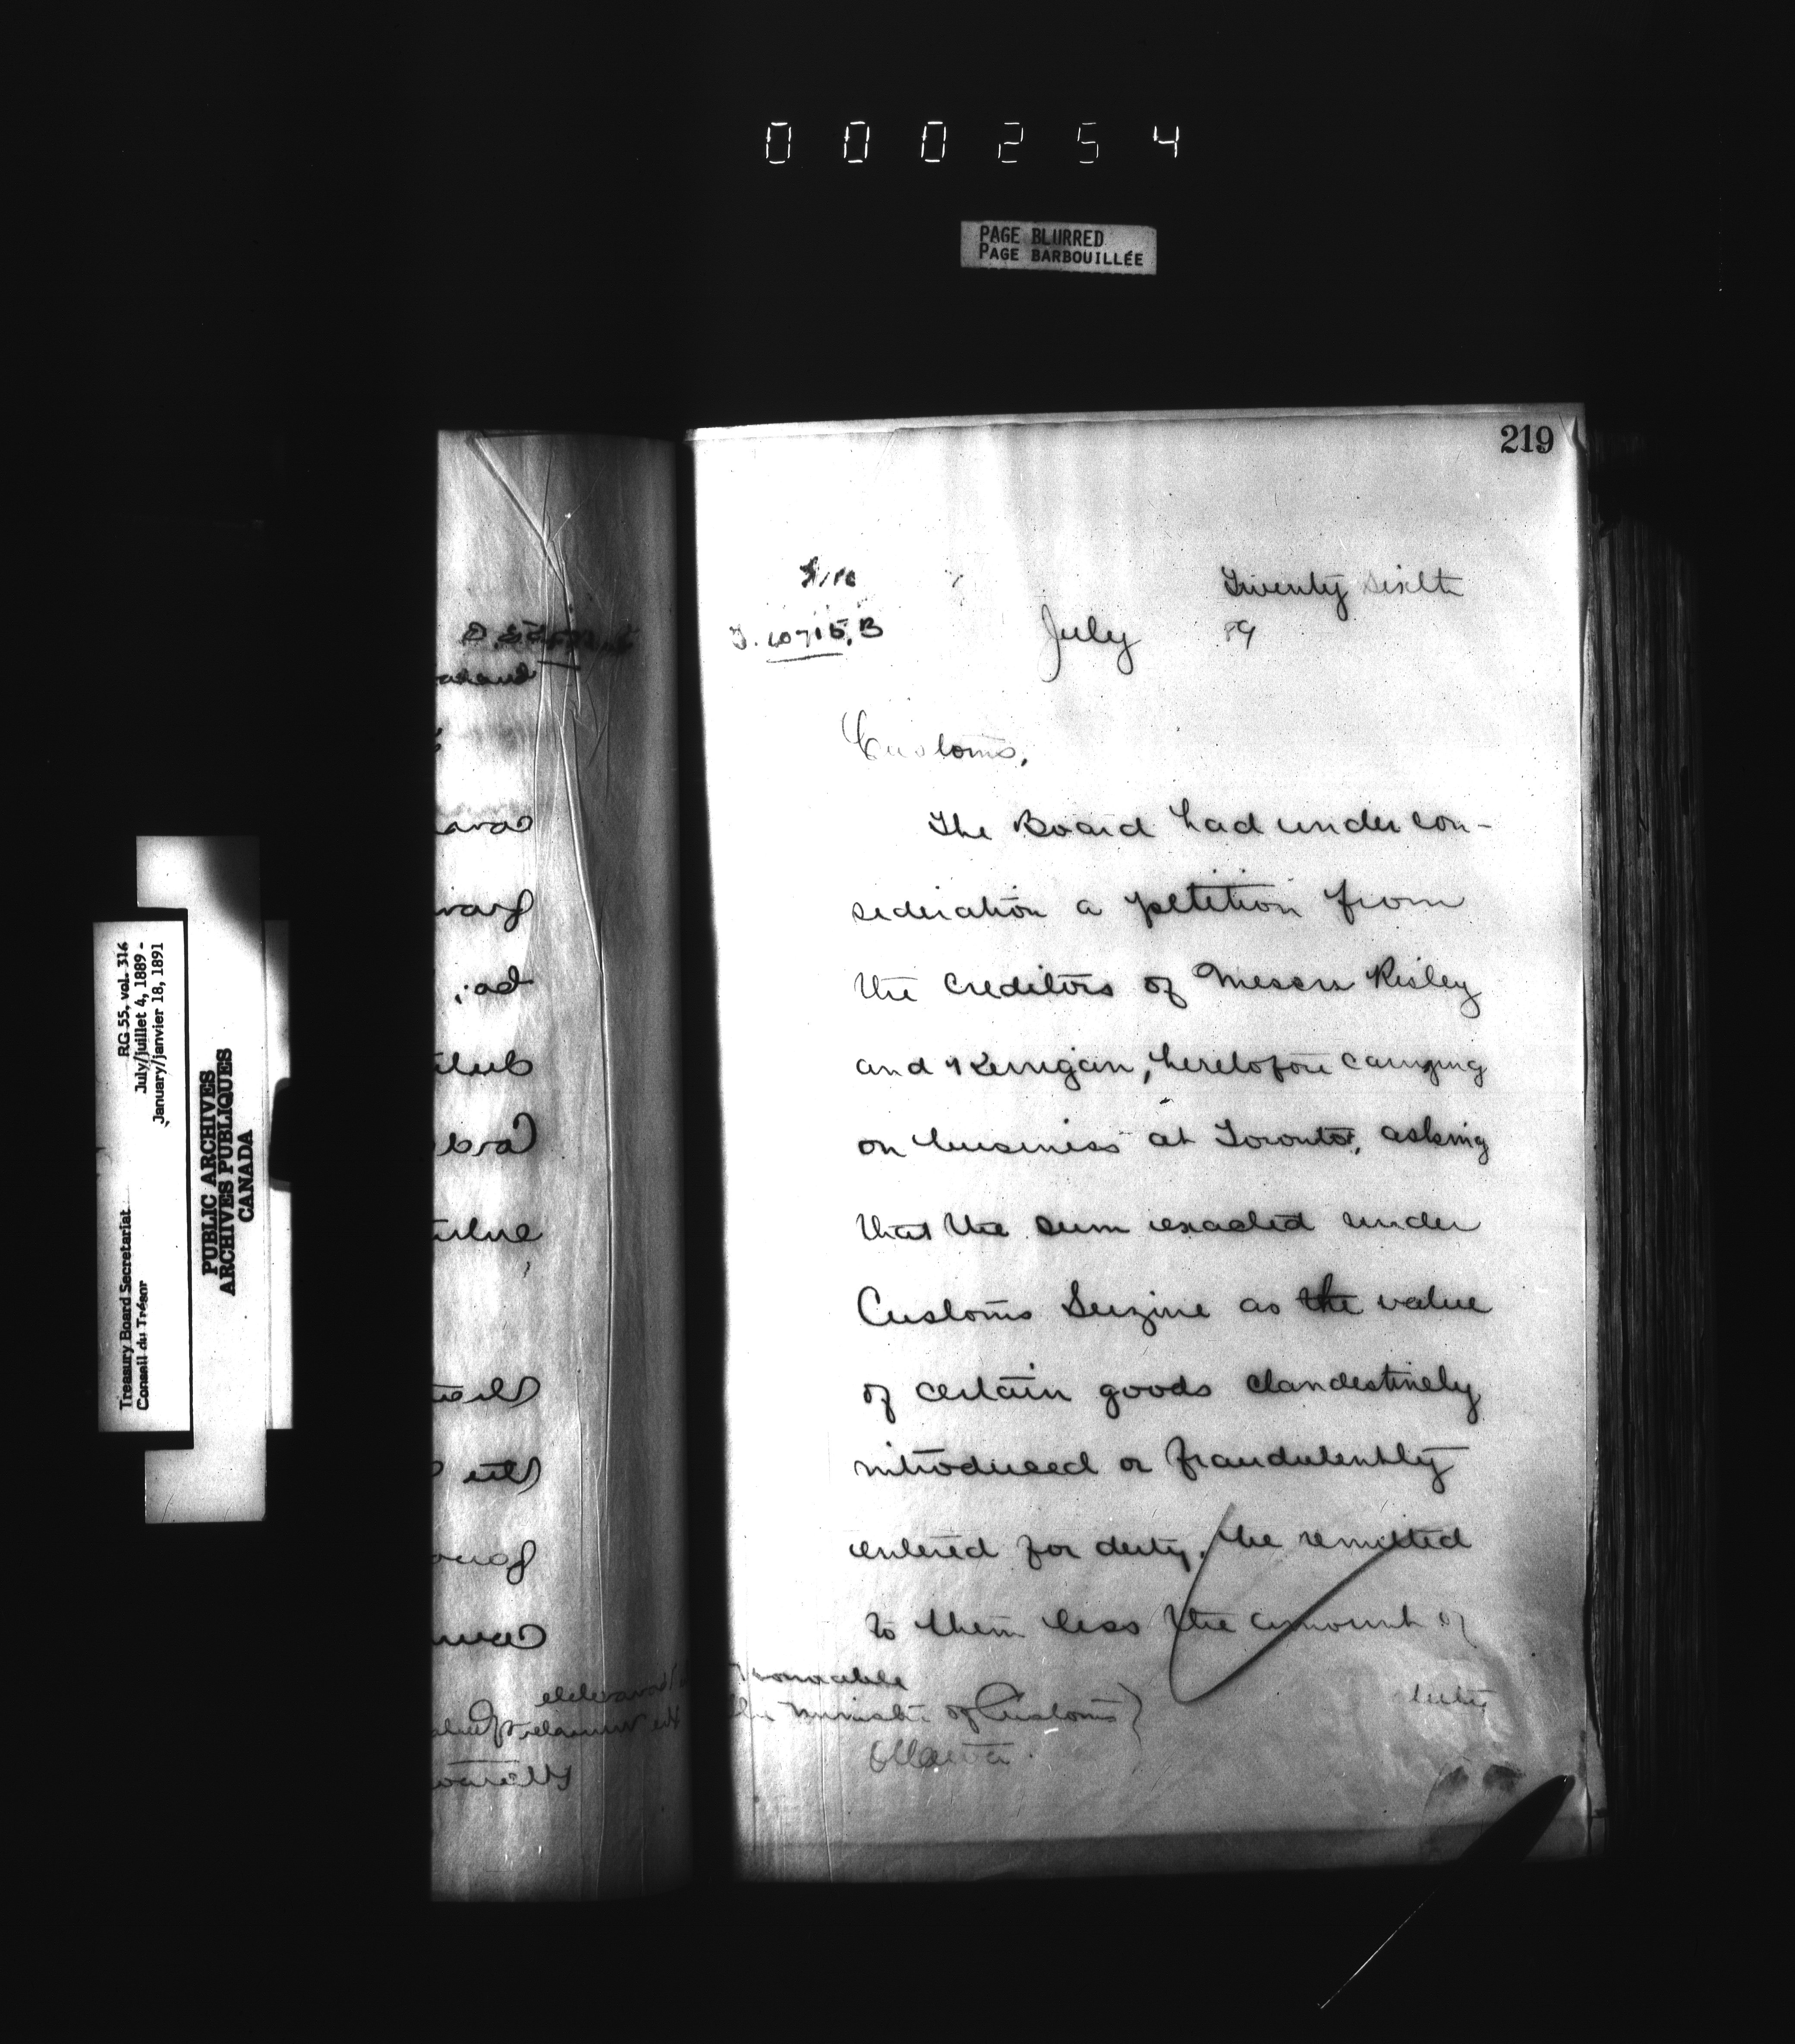 000254
PAGE BLURRED
PAGE BARBOUILLÉE
Treasury Board Secretariat
Conseil du Trésor
RG 55, vol. 316
July/juillet 4, 1889 -
January/janvier 18, 1891
PUBLIC ARCHIVES
ARCHIVES PUBLIQUES
CANADA
219
Twenty sixth
July 89
Customs,
The Board had under con-
sideration a petition from
the creditors of Messrs Risley
and Kerrigan, heretofore carrying
on business at Toronto, asking
that the sum exacted under
Customs Seizure as the value
of certain goods clandestinely
introduced or fraudulently
entered for duty, be remitted
to them less the amount of
duty
Honorable
The Minister of Customs)
Ottawa.